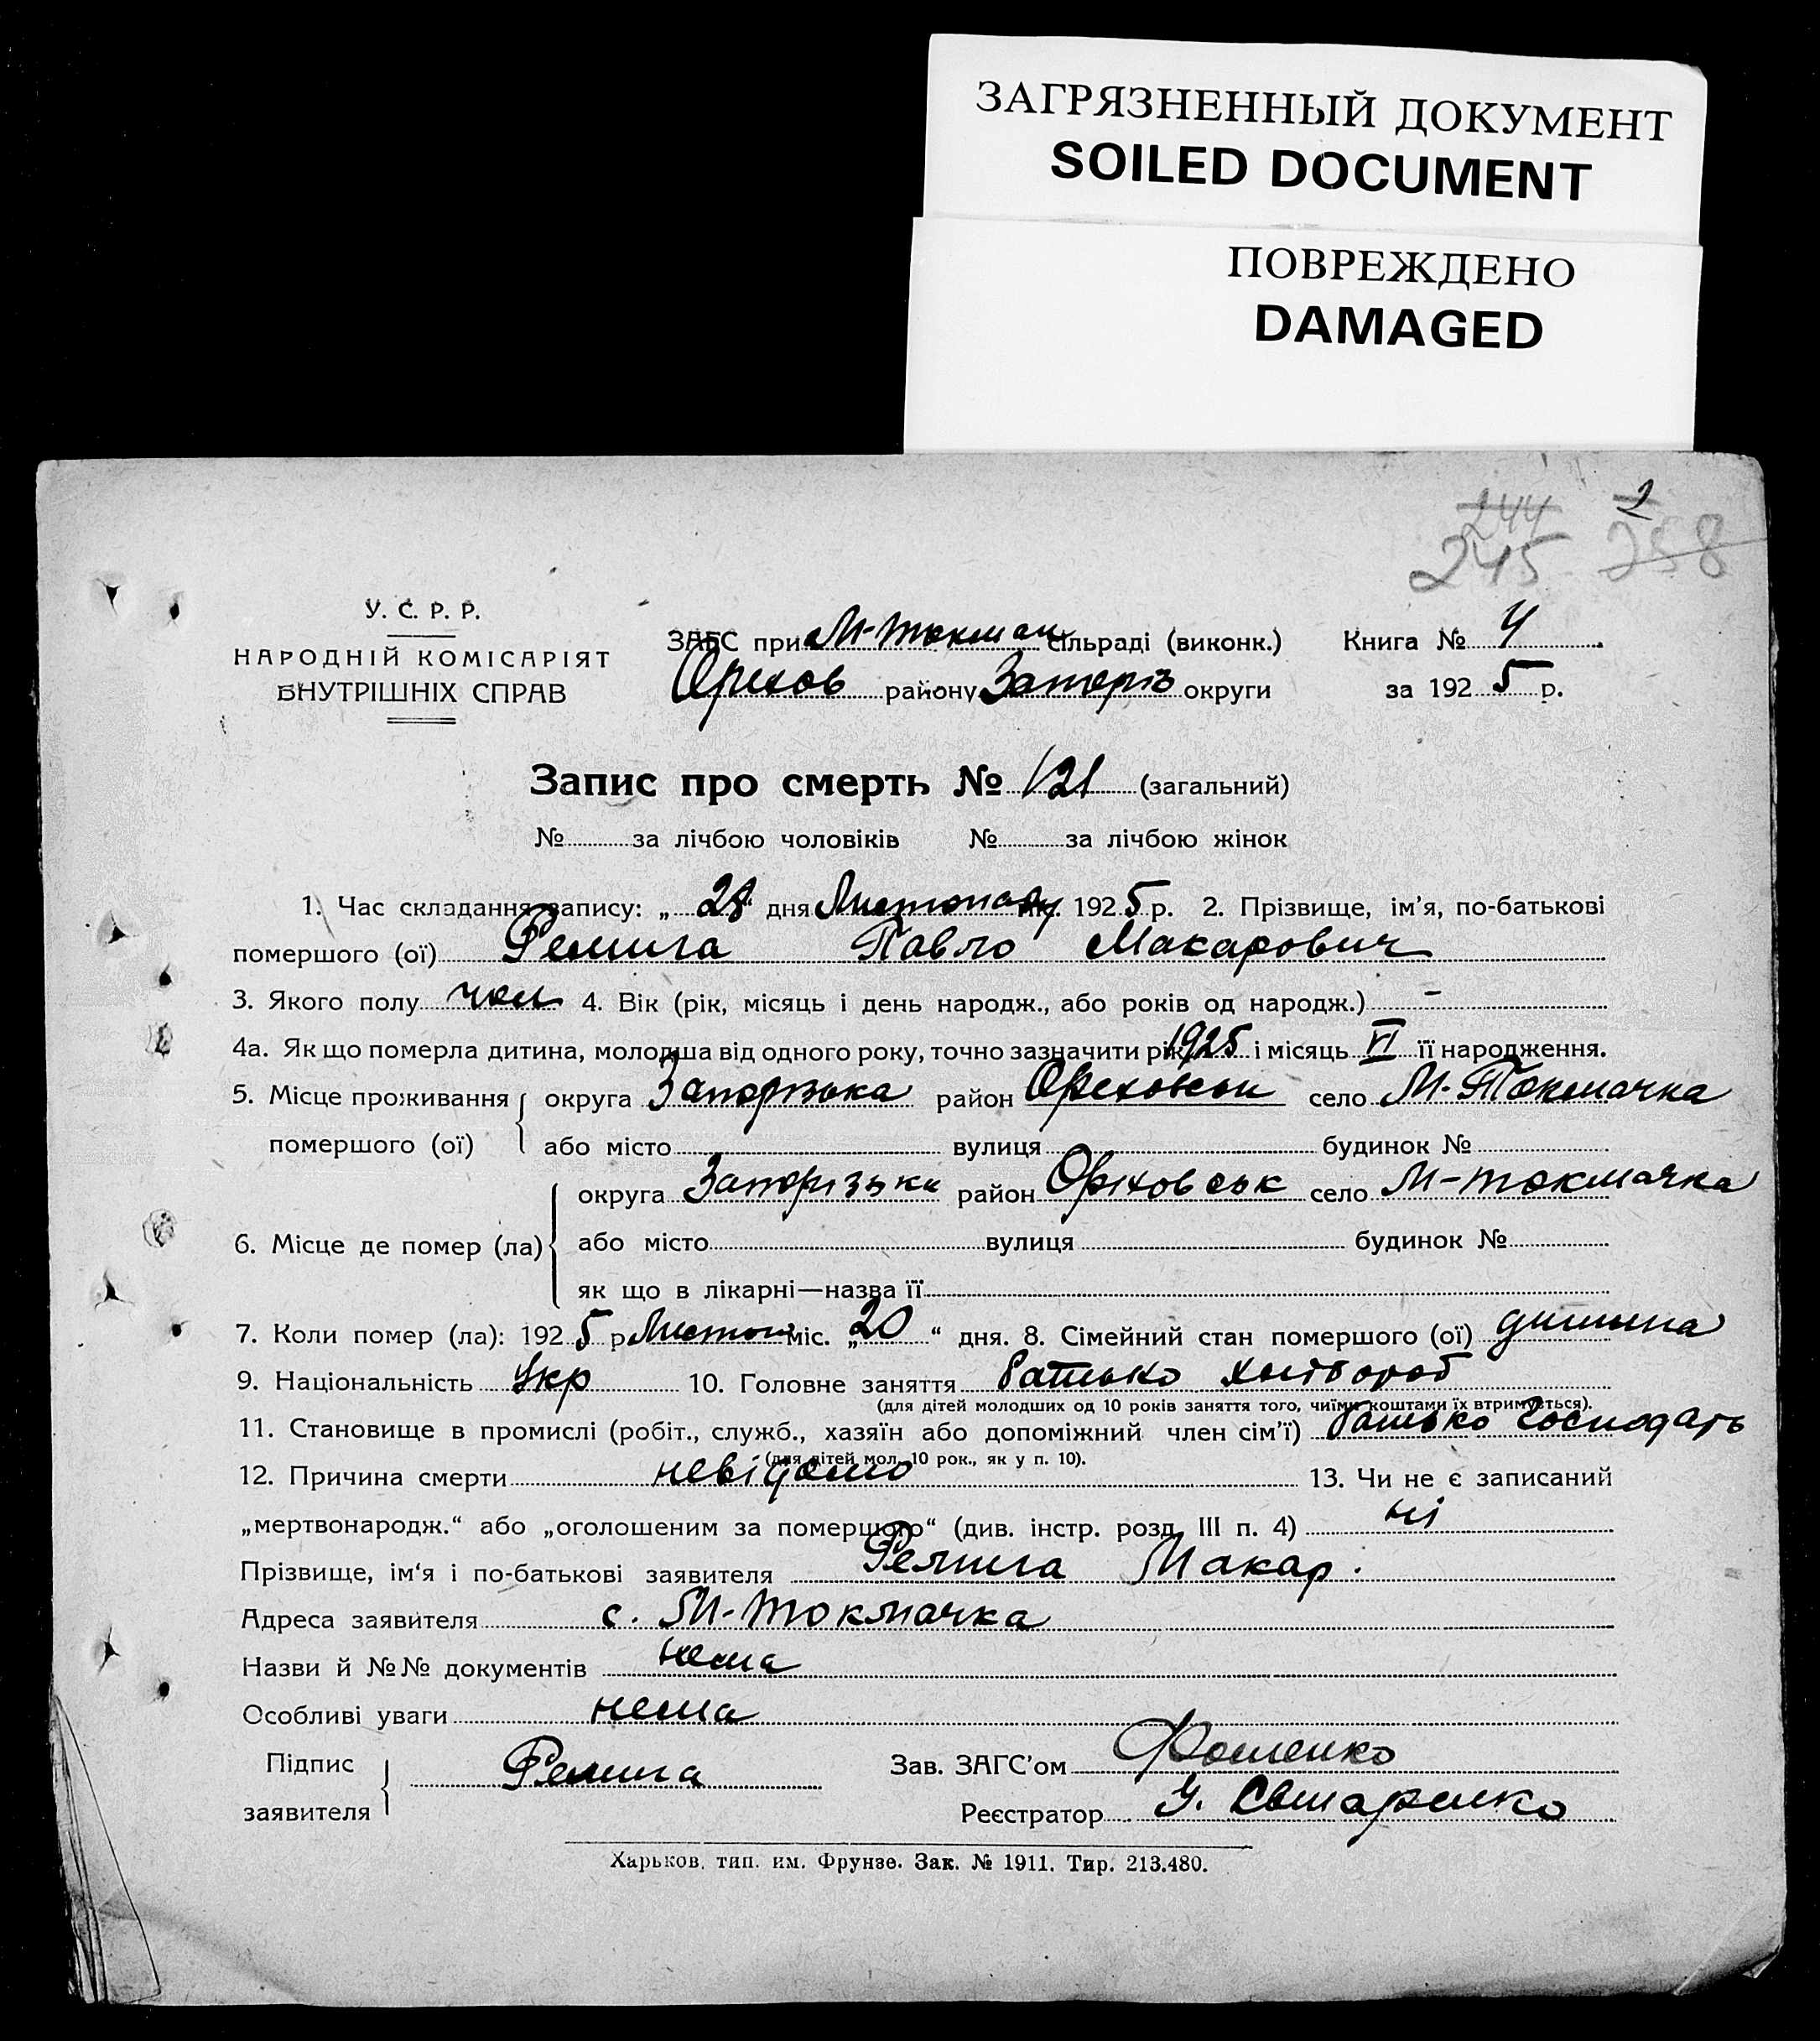 ЗАГРЯЗНЕННЫЙ ДОКУМЕНТ
SOILED DOCUMENT
ПОВРЕЖДЕНО
DAMAGED
244 2
245 258
У. С. Р. Р.
НАРОДНІЙ КОМІСАРІЯТ
ВНУТРІШНІХ СПРАВ
ЗАГС при М-токмац сільраді (виконк.) Книга № 4
Орехов району Запоріз округи за 1925 р.
Запис про смерть № 121 (загальний)
№ за лічбою чоловіків № за лічбою жінок
1. Час складання запису: „28“ дня Листопаду міс. 1925 р. 2. Прізвище, ім'я, по-батькові
помершого (ої) Ремига Павло Макарович
3. Якого полу чол 4. Вік (рік, місяць і день народж., або років од народж.) -
4а. Як що померла дитина, молодша від одного року, точно зазначити рік 1925 і місяць VI її народження.
5. Місце проживання помершого (ої) округа Запорізька район Ореховськ село М-Токмачка
або місто вулиця будинок №
6. Місце де помер (ла) округа Запорізька район Оріховськ село М-токмачка
або місто вулиця будинок №
як що в лікарні—назва її
7. Коли помер (ла): 1925 р. Листоп міс. „20“ дня. 8. Сімейний стан помершого (ої) дитина
9. Національність Укр 10. Головне заняття батько хлібороб
(для дітей молодших од 10 років заняття того, чиїми коштами їх втримується).
11. Становище в промислі (робіт., служб., хазяїн або допоміжний член сім'ї) батько господарь
(для дітей мол. 10 рок., як у п. 10).
12. Причина смерти невідомо 13. Чи не є записаний
„мертвонародж.“ або „оголошеним за помершого“ (див. інстр. розд. III п. 4) ні
Прізвище, ім'я і по-батькові заявителя Ремига Макар.
Адреса заявителя с. М-токмачка
Назви й №№ документів нема
Особливі уваги нема
Підпис заявителя Ремига Зав. ЗАГС'ом Фоменко
Реєстратор
Харьков, тип. им. Фрунзе. Зак. № 1911. Тир. 213.480.